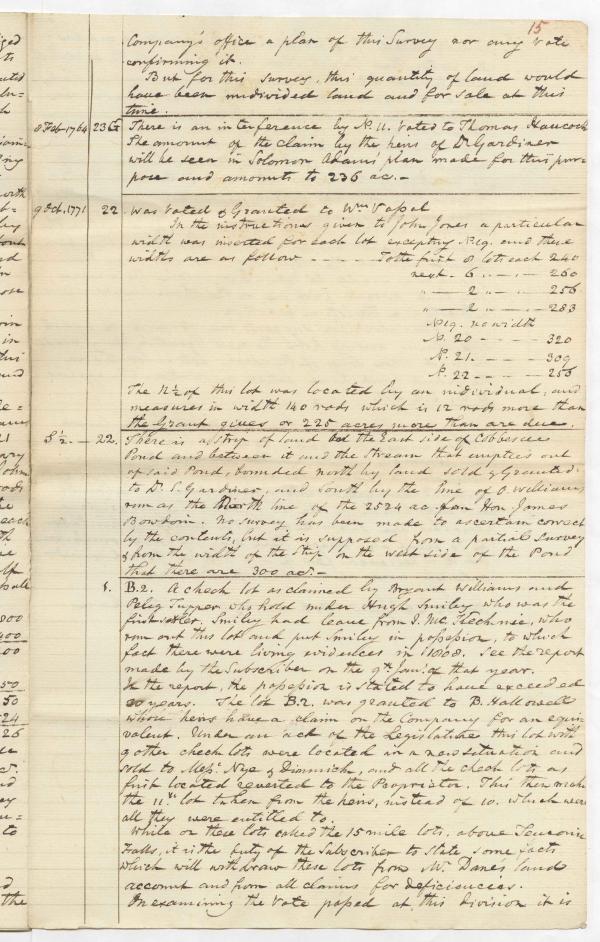 15
Company's office a plan of this Survey nor any Vote
confirming it.
But for this survey, this quantity of land would
have been undivided land and for sale at this
time.
8 Feb 1764 23 G There is an interference by N. 11. Voted to Thomas Hancock
The amount of the claim by the heirs of Dr Gardiner
will be seen in Solomon Adams' plan made for this pur-
pose and amounts to 236 ac.-
9 Oct. 1771 22 was Voted & Granted to Wm Vassal
In the instructions given to John Jones a particular
width was inserted for each lot excepting N. 19. and these
widths are as follow - - - - To the first 8 lots each 240
next - 6 " - " - 260
" - 2 " - " 256
" - 2 " - " 283
N. 19. no width
N. 20 - - - - 320
N. 21. - - - - 309
N. 22 - - - - 256
The N ½ of this lot was located by an individual, and
measures in width 140 rods which is 12 rods more than
the Grant gives or 225 acres more than are due.
S ½. - 22. There is a strip of land the East side of Cobbesee
Pond and between it and the Stream that empties out
of said Pond, bounded north by land sold & Granted
to Dr S. Gardiner, and South by the line of O. Williams
run as the North line of the 2524 ac. Hon James
Bowdoin. No survey has been made to ascertain correct
by the contents, but it is supposed from a partial survey
& from the width of the Strip on the west side of the Pond
that there are 300 acs.-
B. 2. A check lot as claimed by Bryant Williams and
Peleg Tupper who hold under Hugh Smiley who was the
first settler. Smiley had leave from J. McKechnie, who
run out this lot and put Smiley in possession, to which
fact there were living evidences in 1808. See the report
made by the Subscriber on the 9th Jany. of that year.
In the report, the possession is stated to have exceeded
years. The lot B. 2. was granted to B. Hallowell
whose heirs have a claim on the Company for an equi
valent. Under an act of the Legislature this lot with
9 other check lots were located in a new situation and
sold to Messs. Nye & Dimmick, and all the check lots as
first located reverted to the Proprietor. This then makes
the 11th lot taken from the heirs, instead of 10. which were
all they were entitled to.
While on these lots called the 15 mile lots, above Teuconic
Falls, it is the duty of the Subscriber to State some facts
which will withdraw these lots from Mr. Dane's land
account and from all claims for deficiencies.
On examining the Vote passed at this division it is